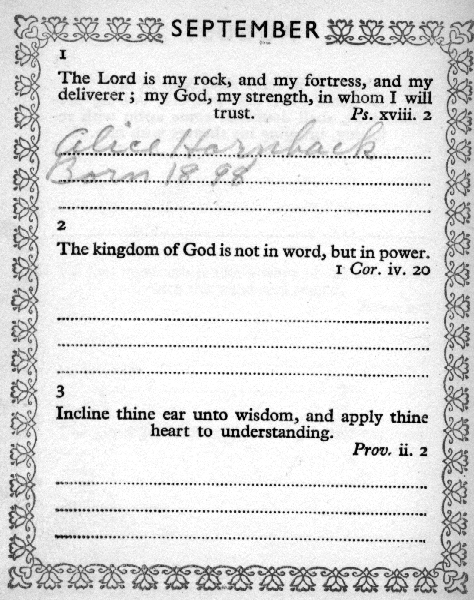 SEPTEMBER
1
The Lord is my rock, and my fortress, and my
deliverer ; my God, my strength, in whom I will
trust. Ps. xviii. 2
Alice Hornback
Born 1898
2
The kingdom of God is not in word, but in power.
1 Cor. iv. 20
3
Incline thine ear unto wisdom, and apply thine
heart to understanding.
Prov. ii. 2